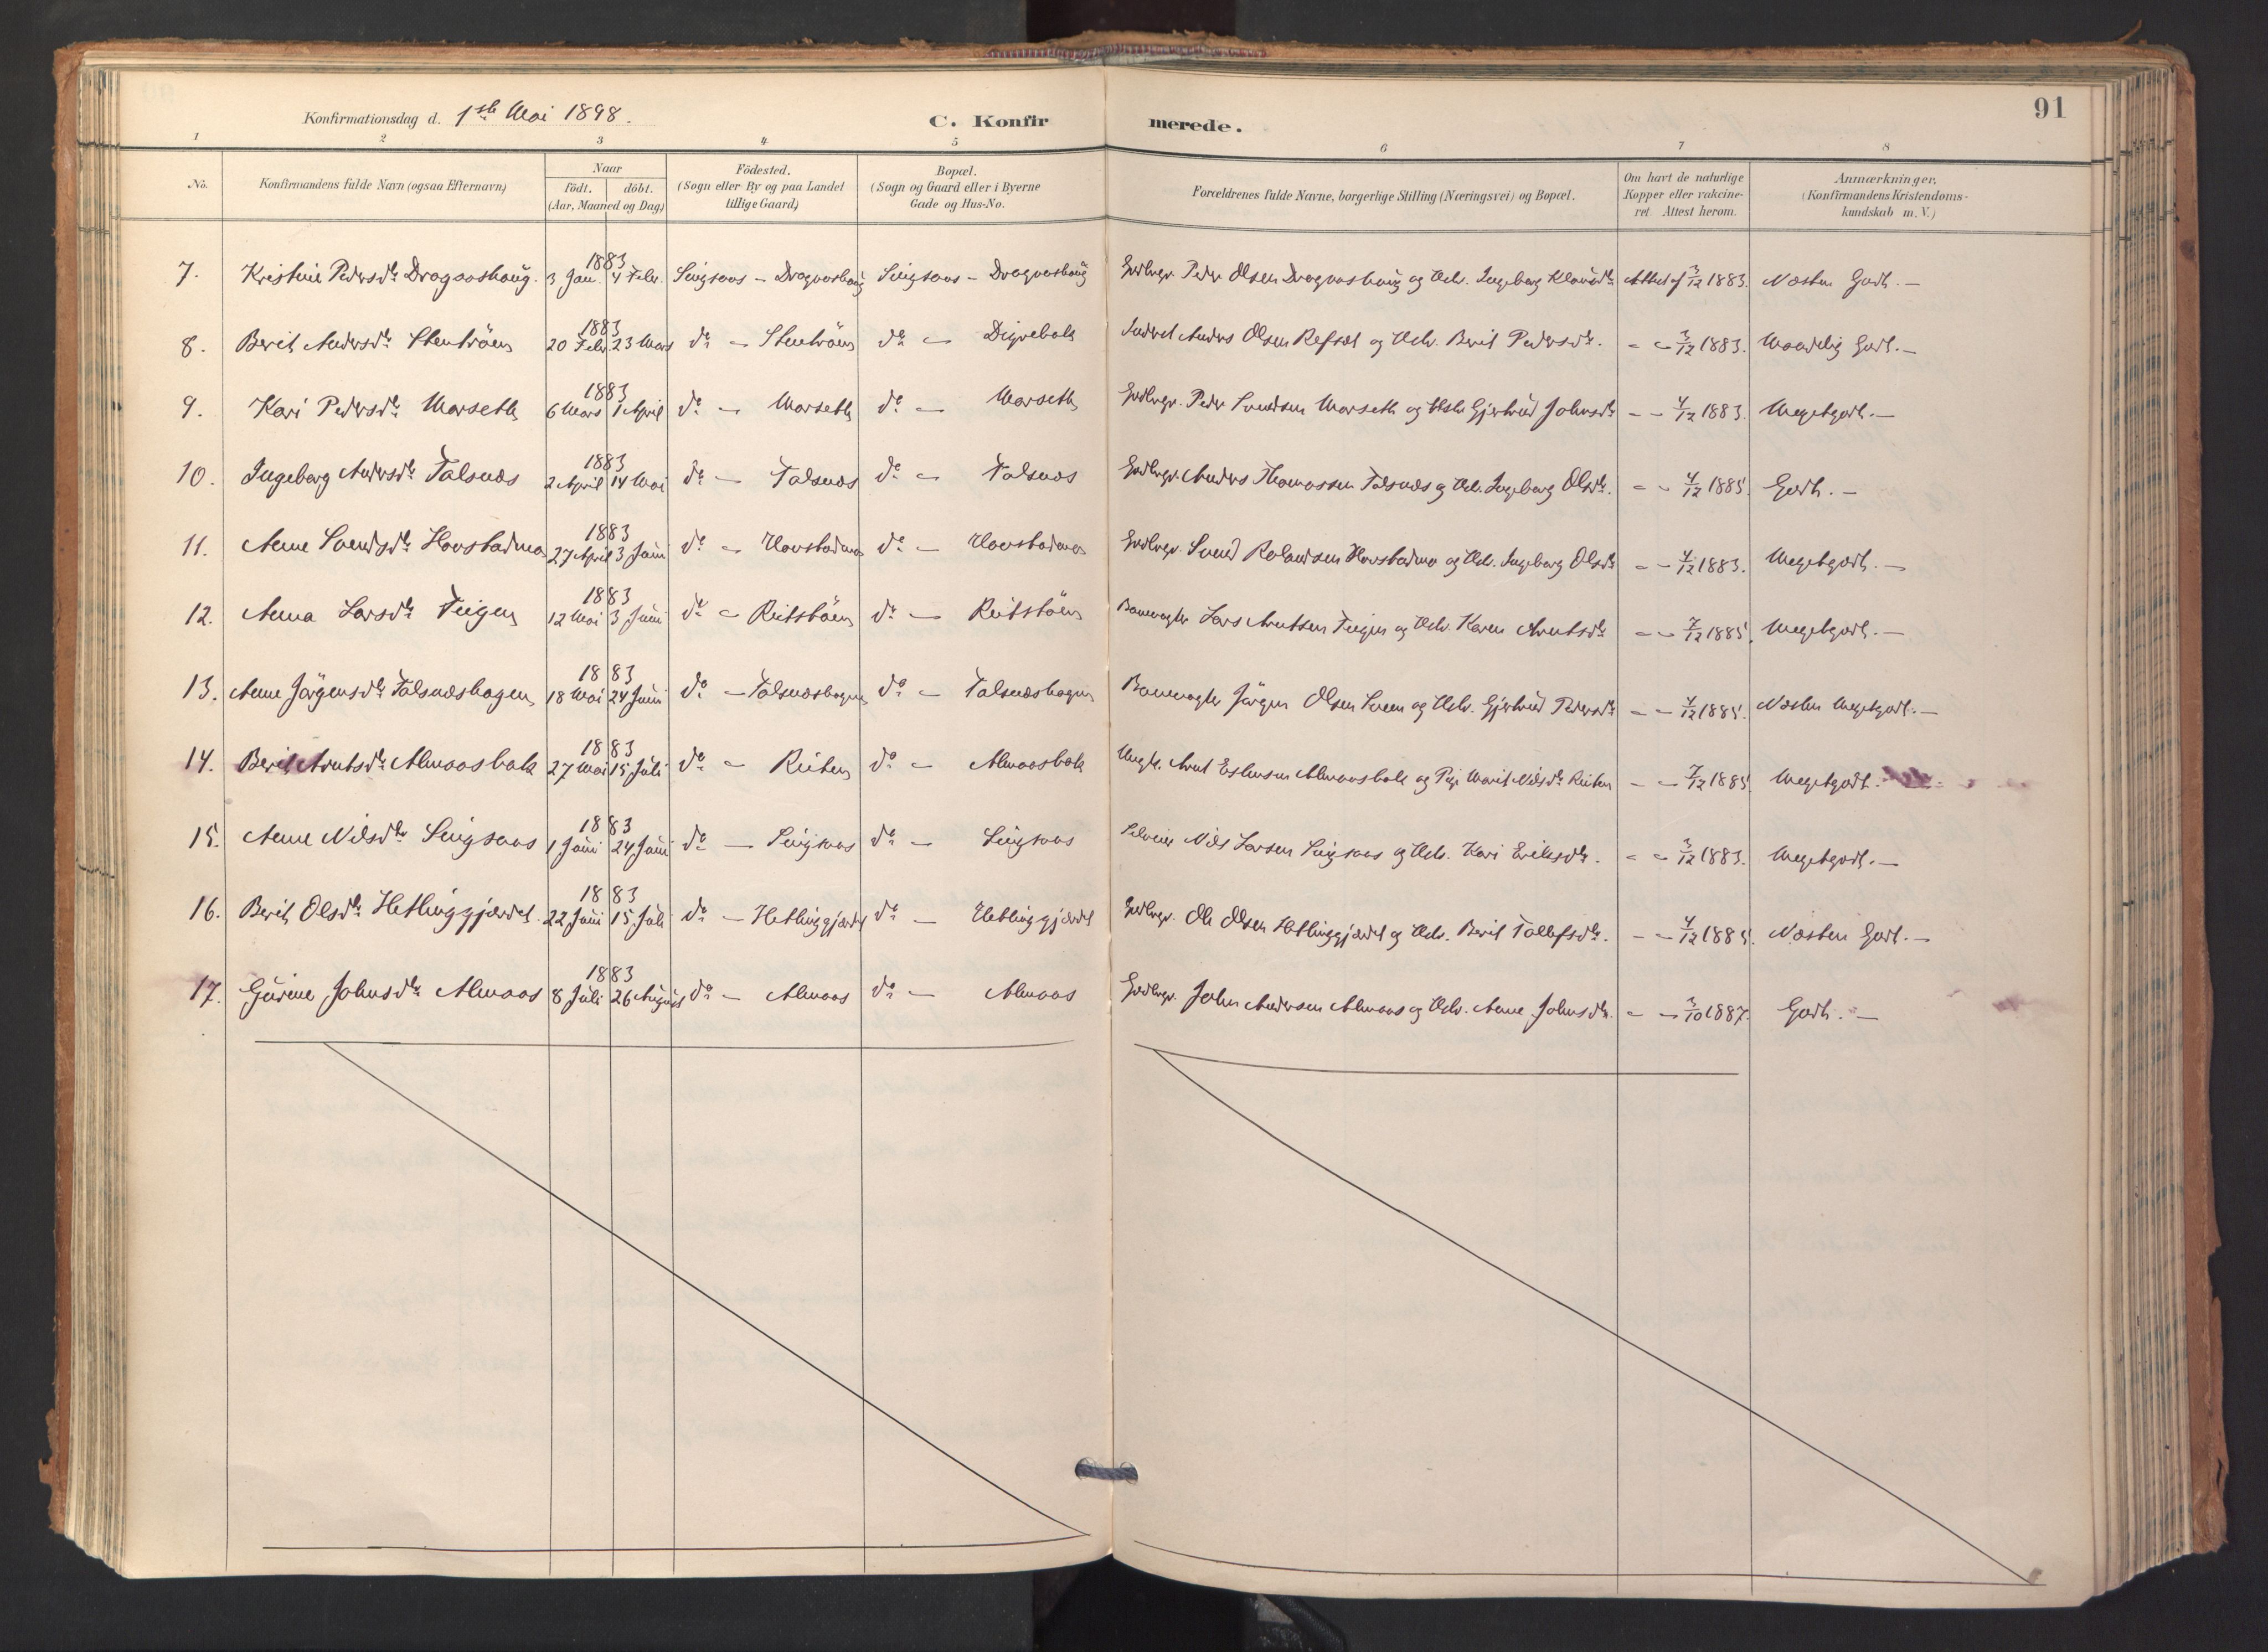 91
Konfirmationsdag d. 1ste Mai 1898.
C. Konfir merede.
1 2 3 4 5 6 7 8
No. Konfirmandens fulde Navn (ogsaa Efternavn) Naar Födt. döbt. (Aar, Maaned og Dag) Födested. (Sogn eller By og paa Landet tillige Gaard) Bopæl. (Sogn og Gaard eller i Byerne Gade og Hus-No. Forældrenes fulde Navne, borgerlige Stilling (Næringsvei) og Bopæl. Om havt de naturlige Kopper eller vakcineret. Attest herom. Anmærkninger, (Konfirmandens Kristendomskundskab m. V.)
1883
7. Kristine Pedersdr Dragaashaug. 3 Jan. 4 Febr. Singsaas - Dragaashaug Singsaas - Dragaashaug Gaardbrgr. Peder Olsen Dragaashaug og Hstr. Ingeborg Attest af 3/12 1883. Næsten Godt. -
1883
8. Berit Andersdr Stentröen 20 Febr. 23 Mars do - Stentröen do - Digrebak Inderst Anders Olsen Refset og Hstr. Berit Pedersdr. - - 3/12 1883. Maadelig Godt. -
1883
9. Kari Pedersdr Marseth 6 Mars 1 April do - Marseth do - Marseth Gaardbrgr. Peder Svendsen Marseth og Hstr. Gjertrud Johnsdr - - 4/12 1883. Megetgodt. -
1883
10. Ingeborg Andersdr Talsnæs 2 April 14 Mai do - Talsnæs do - Talsnæs Gaardbrgr. Anders Thomassen Talsnæs og Hstr. Ingeborg Olsdr. - - 4/12 1885. Godt. -
1883
11. Anne Svendsdr Hovstadmo 27 April 3 Juni do - Hovstadmo do - Hovstadmo Gaardbrgr. Svend Hovstadmo og Hstr. Ingeborg Olsdr - - 4/12 1883. Megetgodt. -
1883
12. Anna Larsdr Teigen 12 Mai 3 Juni do - Ruitstöen do - Ruitstöen Banevogter Lars Arntsen Teigen og Hstr. Karen Arntsdr - - 7/12 1885. Megetgodt. -
1883
13. Anne Jörgensdr Talsnæshagen 18 Mai 24 Juni do - Talsnæshagen do - Talsnæshagen Banevogter Jörgen Olsen og Hstr. Gjertrud Pedersdr - - 4/12 1885. Næsten Megetgodt. -
1883
14. Berit Arntsdr Almaasbak 27 Mai 15 Juli do - Ruiten do - Almaasbak Ungk. Arnt Estensen Almaasbak og Pige Marit Nilsdr Ruiten - - 7/12 1885. Megetgodt.
1883
15. Anne Nilsdr Singsaas 1 Juni 24 Juni do - Singsaas do - Singsaas Selveier Nils Larsen Singsaas og Hstr. Kari Eriksdr. - - 3/12 1883. Megetgodt. -
1883
16. Berit Olsdr Hetlinggjærdet. 22 Juni 15 Juli do - Hetlinggjærdet do - Hetlinggjærdet Gaardbrgr. Ole Olsen Hetlinggjærdet og Hstr. Berit Tollefsdr. - - 4/12 1885. Næsten Godt. -
1883
17. Gurine Johnsdr Almaas 8 Juli 26 August do - Almaas do - Almaas Gaardbrgr. John Andersen Almaas og Hstr. Anne Johnsdr. - - 3/10 1887. Godt. -